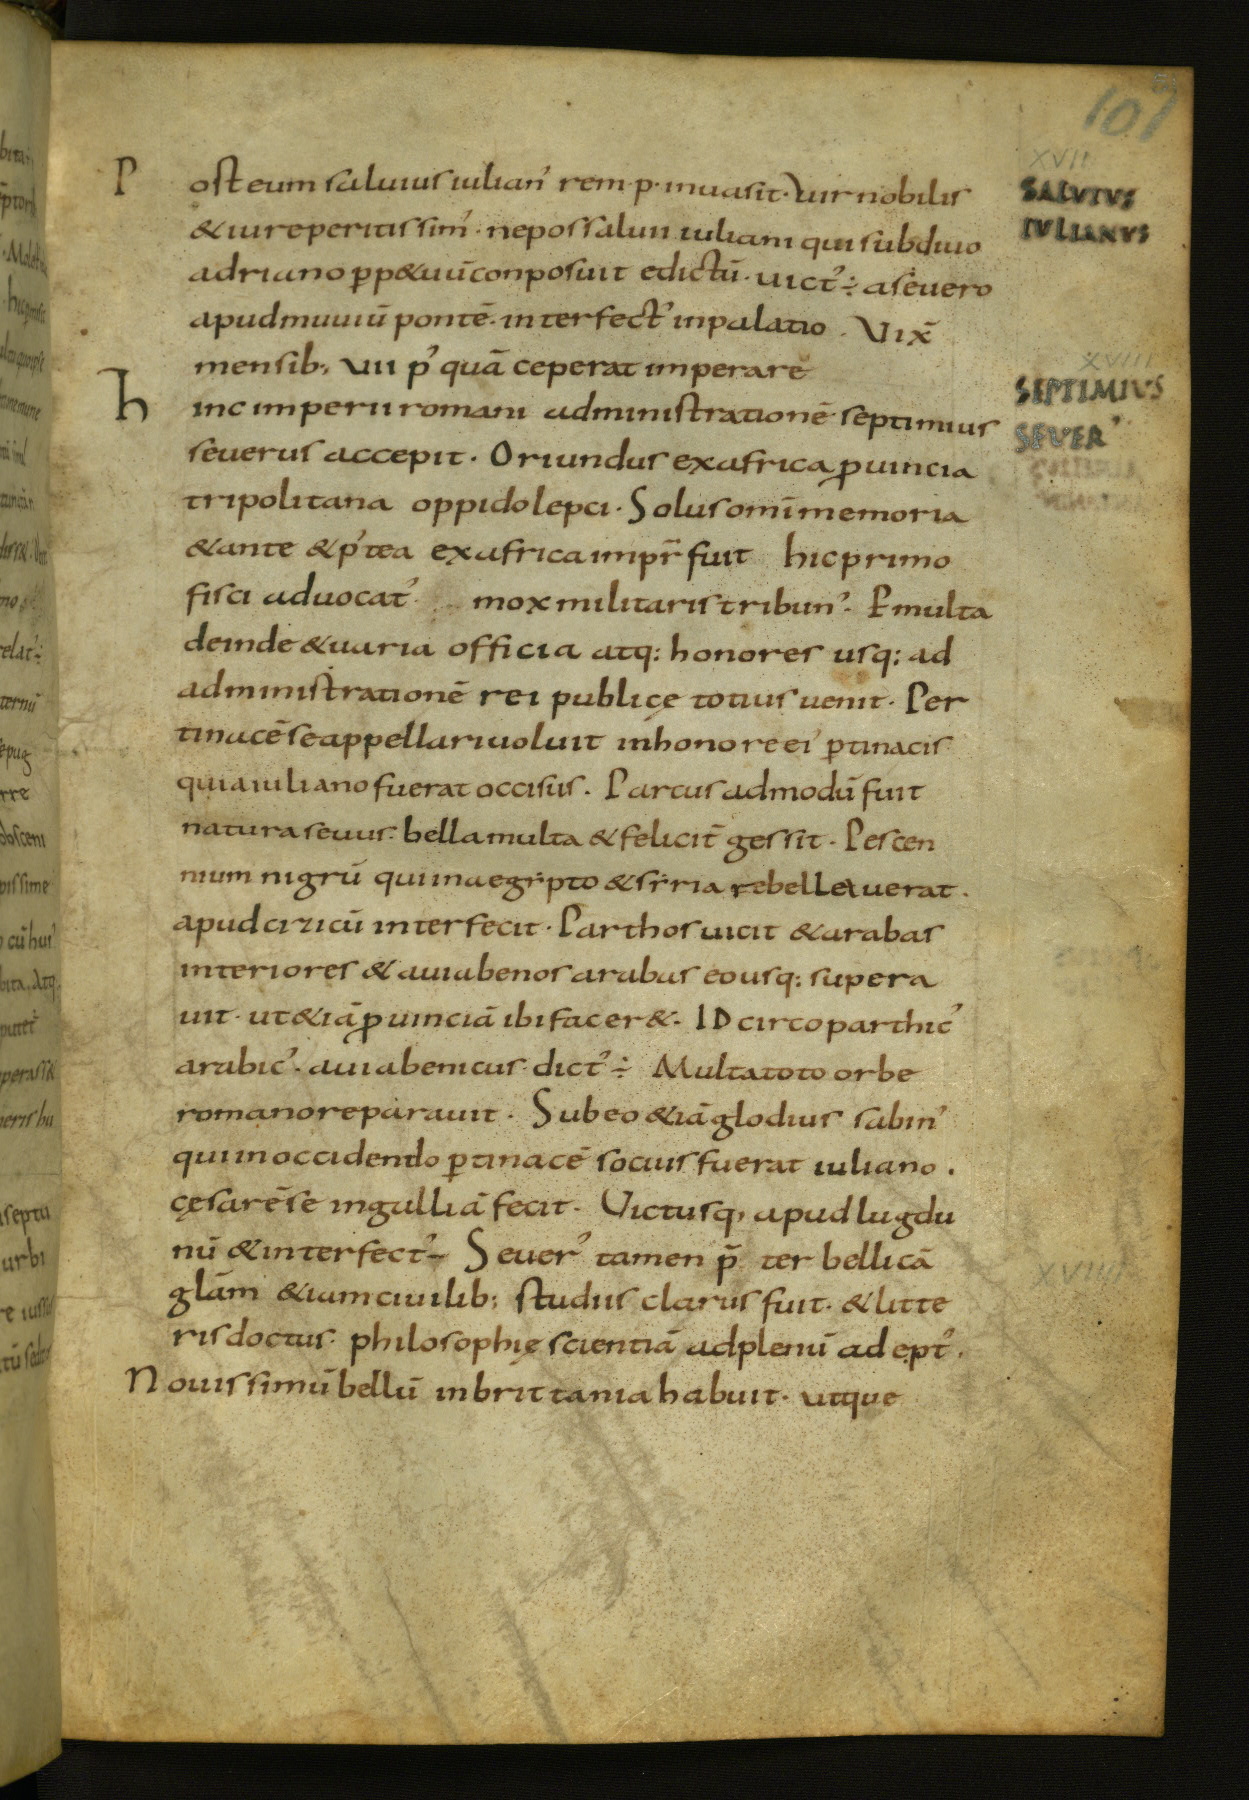 101
XVII
SALVIVS
IVLIANVS
Post eum saluius iulian' rem·p·inuasit·Vir nobilis
& iure peritissim'·nepos saluii iuliani qui sub diuo
adriano pp&uū conposuit edictū·uict'÷ a seuero
apud muuiū pontē·interfect' in palatio·Vix̄
mensib; VII p' quā ceperat imperare
XVIII
SEPTIMIVS
SEVER'
hinc imperii romani administrationē septimius
seuerus accepit·Oriundus ex africa ꝓuincia
tripolitana oppido lepci·Solus omī memoria
& ante & p'tea ex africa impr̄ fuit hic primo
fisci aduocat' mox militaris tribun'·P multa
deinde & uaria officia atq: honores usq: ad
administrationē rei publicę totius uenit·Per
tinacē se appellari uoluit in honore ei' ꝑtinacis
qui a iuliano fuerat occisus·Parcus admodū fuit
natura seuus·bella multa & felicit̄ gessit·Pescen
nium nigrū qui in aegẏpto & sẏria rebellauerat·
apud cizicū interfecit·Parthos uicit & arabas
interiores & auiabenos arabas eo usq: supera
uit·ut &iā ꝓuinciā ibi facer&·IDcirco parthic'
arabic'·auiabenicus·dict'÷ Multa toto orbe
romano reparauit·Sub eo &iā glodius sabin'
qui in occidendo ꝑtinacē socius fuerat iuliano·
cęsarē se in galliā fecit·Victusq; apud lugdu
nū & interfect'÷ Seuer' tamen p̄ter bellicā
glām &iam ciuilib; studiis clarus fuit·& litte
ris doctus·philosophię scientiā ad plenū adept'·
XVIIII
Nouissimū bellū in brittania habuit·utque